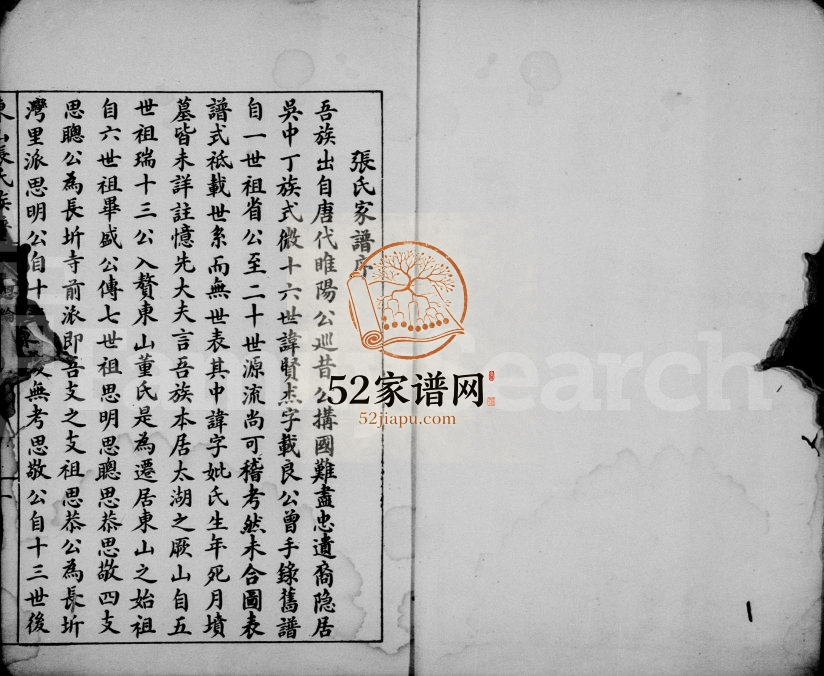 張氏家譜序
吾族出自唐代睢陽公巡昔公搆國難盡忠遺裔隐居
吳中丁族式微十六世諱賢杰字載良公曾手錄舊譜
自一世祖省公至二十世源流尚可稽考然未合圖表
譜式祗載世系而無世表其中諱字妣氏生年死月墳
墓皆未詳註憶先大夫言吾族本居太湖之厥山自五
世祖瑞十三公入贅東山董氏是為遷居東山之始祖
自六世祖畢盛公傳七世祖思明思聰思恭思敬四支
思聰公為長圻寺前派即吾支之支祖思恭公為長圻
灣里派思明公自十無考思敬公自十三世後
東山張氏族
52家谱网
52jiapu.com
FamilySearch